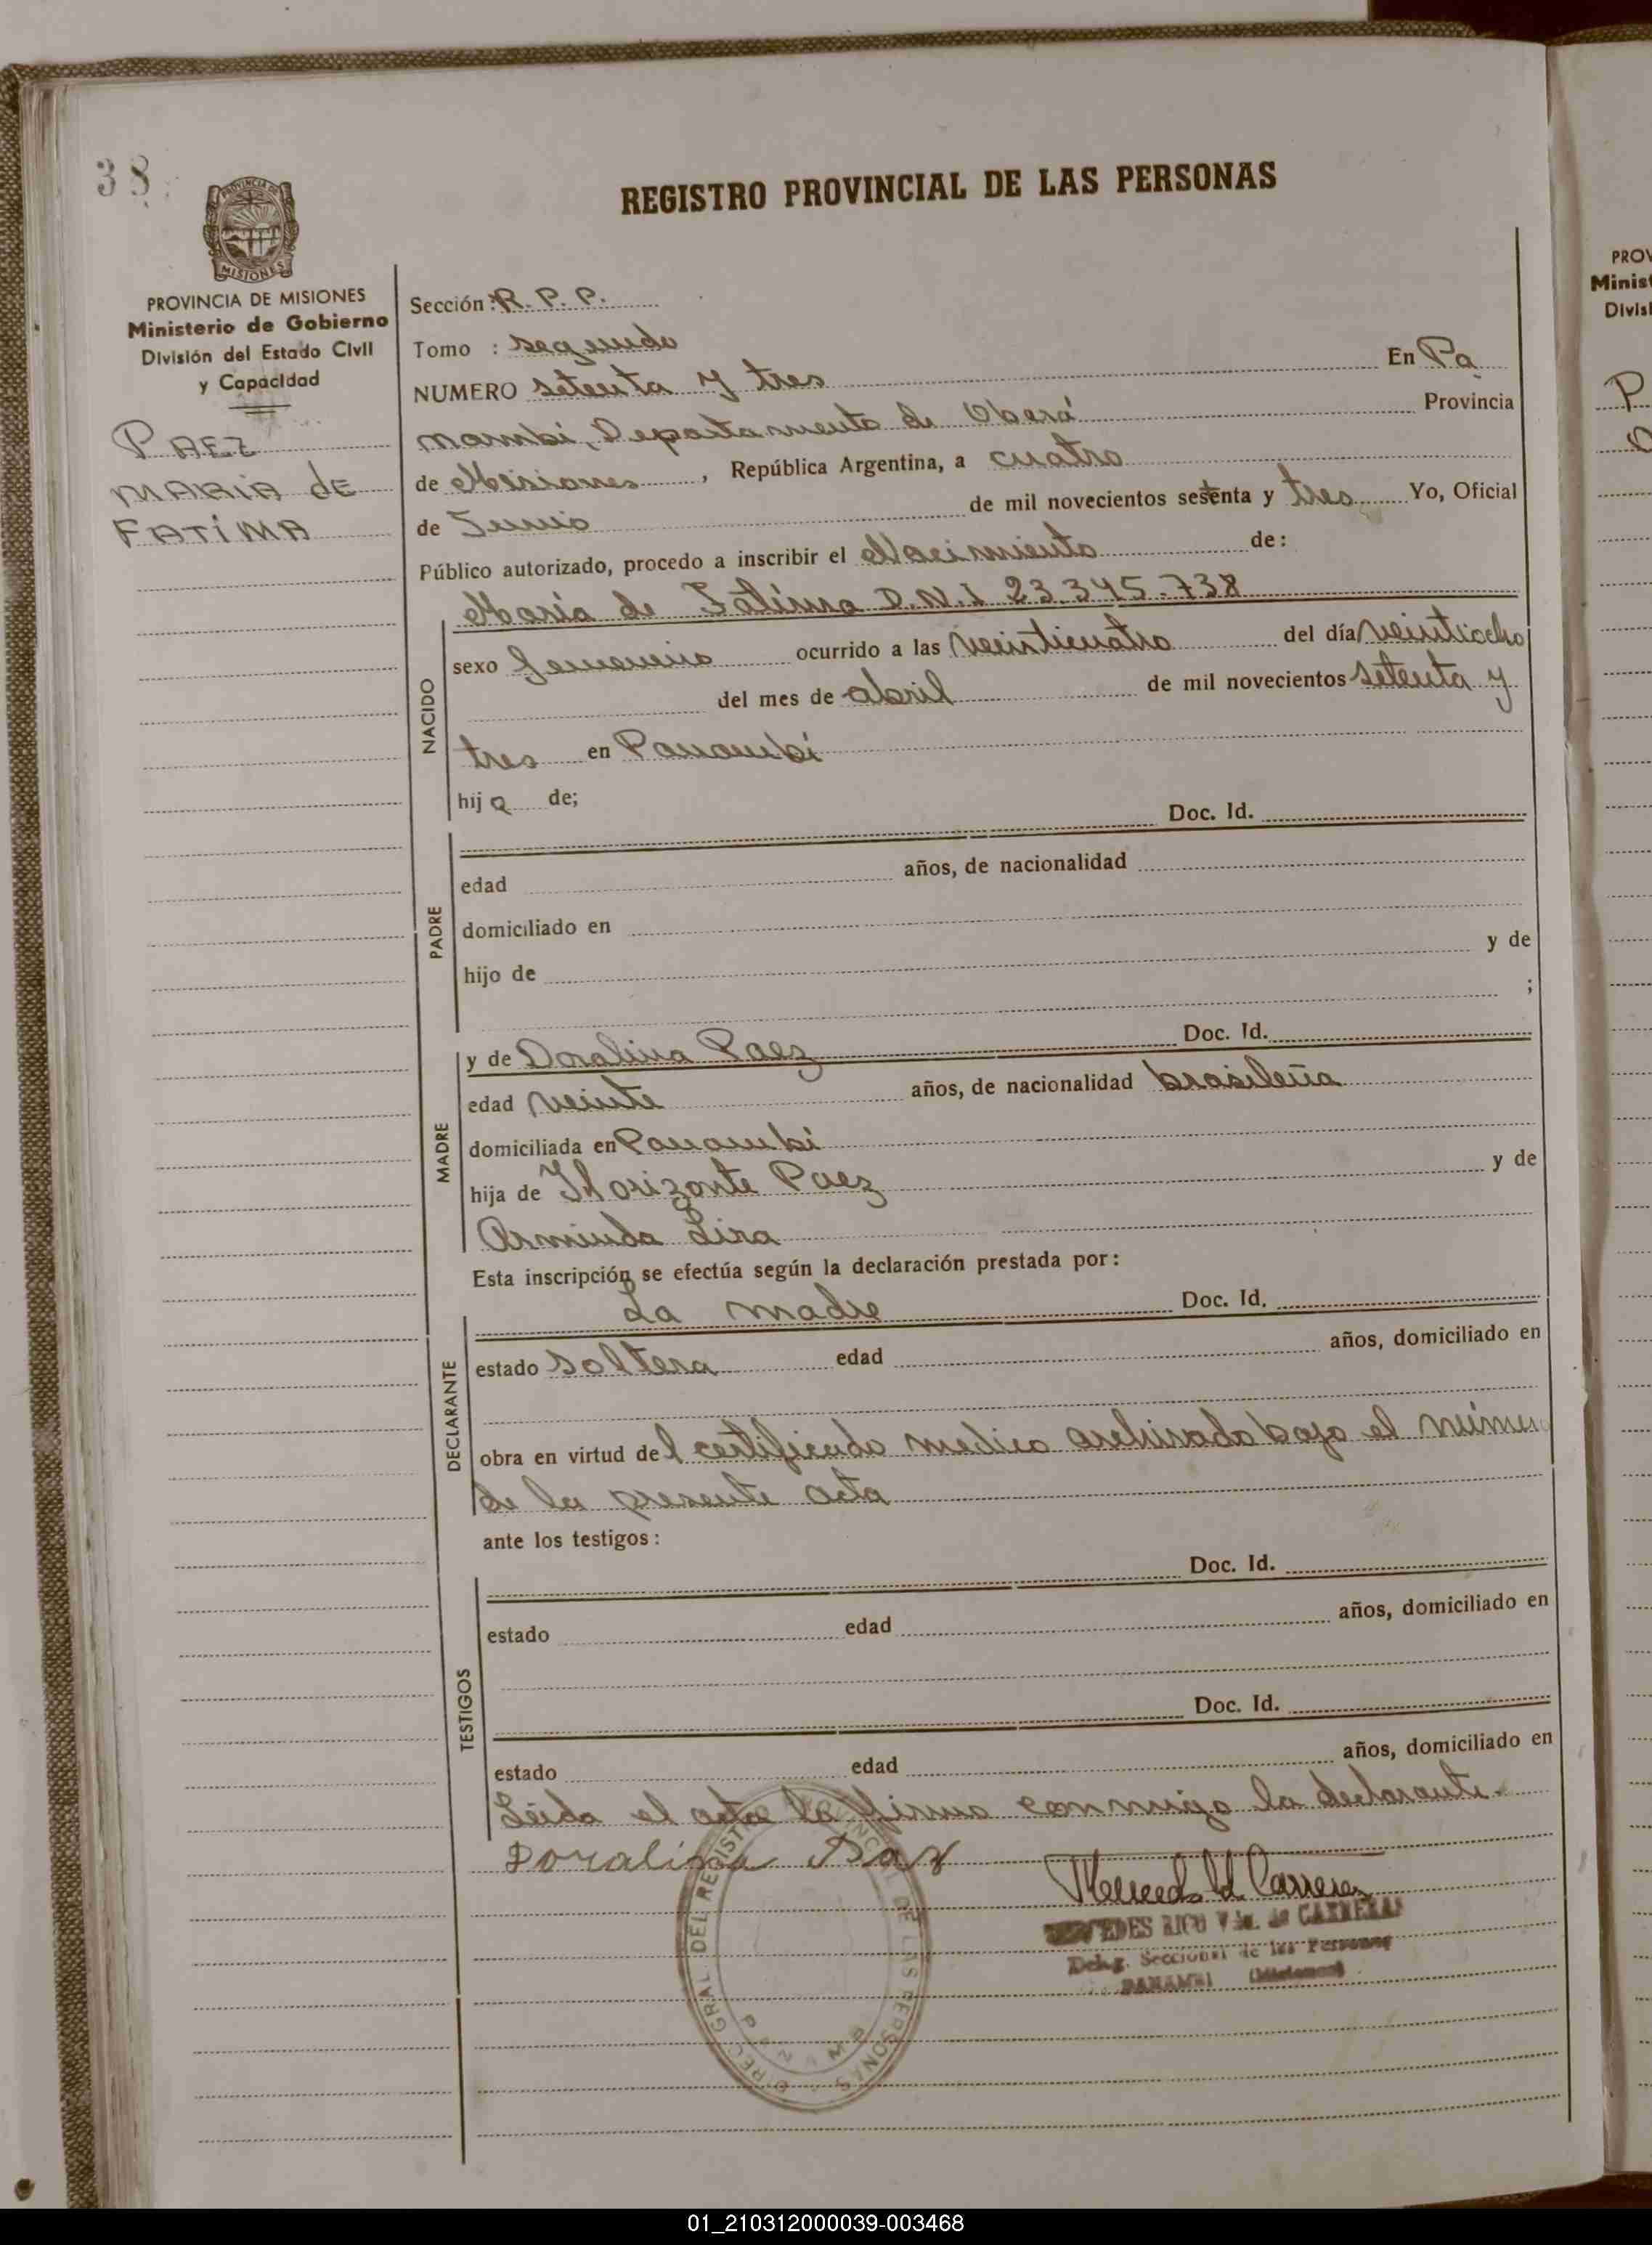 38
REGISTRO PROVINCIAL DE LAS PERSONAS
PROVINCIA DE
MISIONES
PROVINCIA DE MISIONES
Ministerio de Gobierno
División del Estado Civil
y Capacidad
PAEZ
MARIA dE
FATIMA
Sección : R. P. P.
Tomo : segundo
NUMERO setenta y tres En Pa
nambí, Departamento de Oberá Provincia
de Misiones, República Argentina, a cuatro
de Junio de mil novecientos setenta y tres Yo, Oficial
Público autorizado, procedo a inscribir el Nacimiento de:
María de Fátima D.N.I 23.345.738
NACIDO
sexo femenino ocurrido a las veinticuatro del día veintiocho
del mes de abril de mil novecientos setenta y
tres en Panambí
hija de;
PADRE
Doc. Id.
edad años, de nacionalidad
domiciliado en
hijo de y de
;
MADRE
y de Doralina Paez Doc. Id.
edad veinte años, de nacionalidad brasileña
domiciliada en Panambí
hija de Horizonte Paez y de
Arminda Lira
Esta inscripción se efectúa según la declaración prestada por:
DECLARANTE
La madre Doc. Id.
estado soltera edad años, domiciliado en
obra en virtud del certificado medico archivado bajo el número
de la presente acta
ante los testigos:
TESTIGOS
Doc. Id.
estado edad años, domiciliado en
Doc. Id.
estado edad años, domiciliado en
Leída el acta la firma conmigo la declarante.
Doralina
MERCEDES RICO Vda. de CARRERAS
Deleg. Seccional de las Personas
PANAMBI (Misiones)
DIREC. GRAL. DEL REGISTRO PROVINCIAL DE LAS PERSONAS
PROV
Minist
Divisi
P
01_210312000039-003468